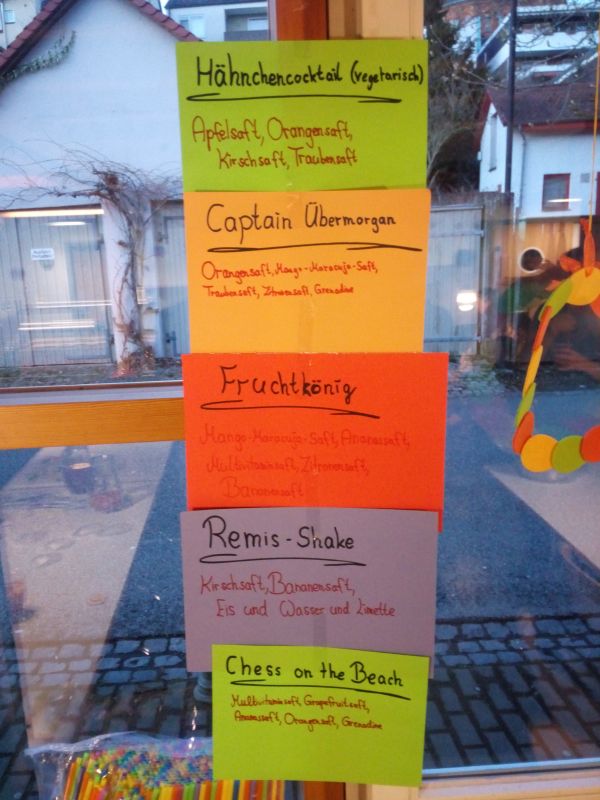 Hähnchencocktail (vegetarisch)
Apfelsaft, Orangensaft,
Kirschsaft, Traubensaft
Captain Übermorgan
Orangensaft, Mango-Maracuja-Saft,
Traubensaft, Zitronensaft, Grenadine
Fruchtkönig
Mango-Maracuja-Saft, Ananassaft,
Multivitaminsaft, Zitronensaft,
Bananensaft
Remis-Shake
Kirschsaft, Bananensaft,
Eis und Wasser und Limette
Chess on the Beach
Multivitaminsaft, Grapefruitsaft,
Ananassaft, Orangensaft, Grenadine